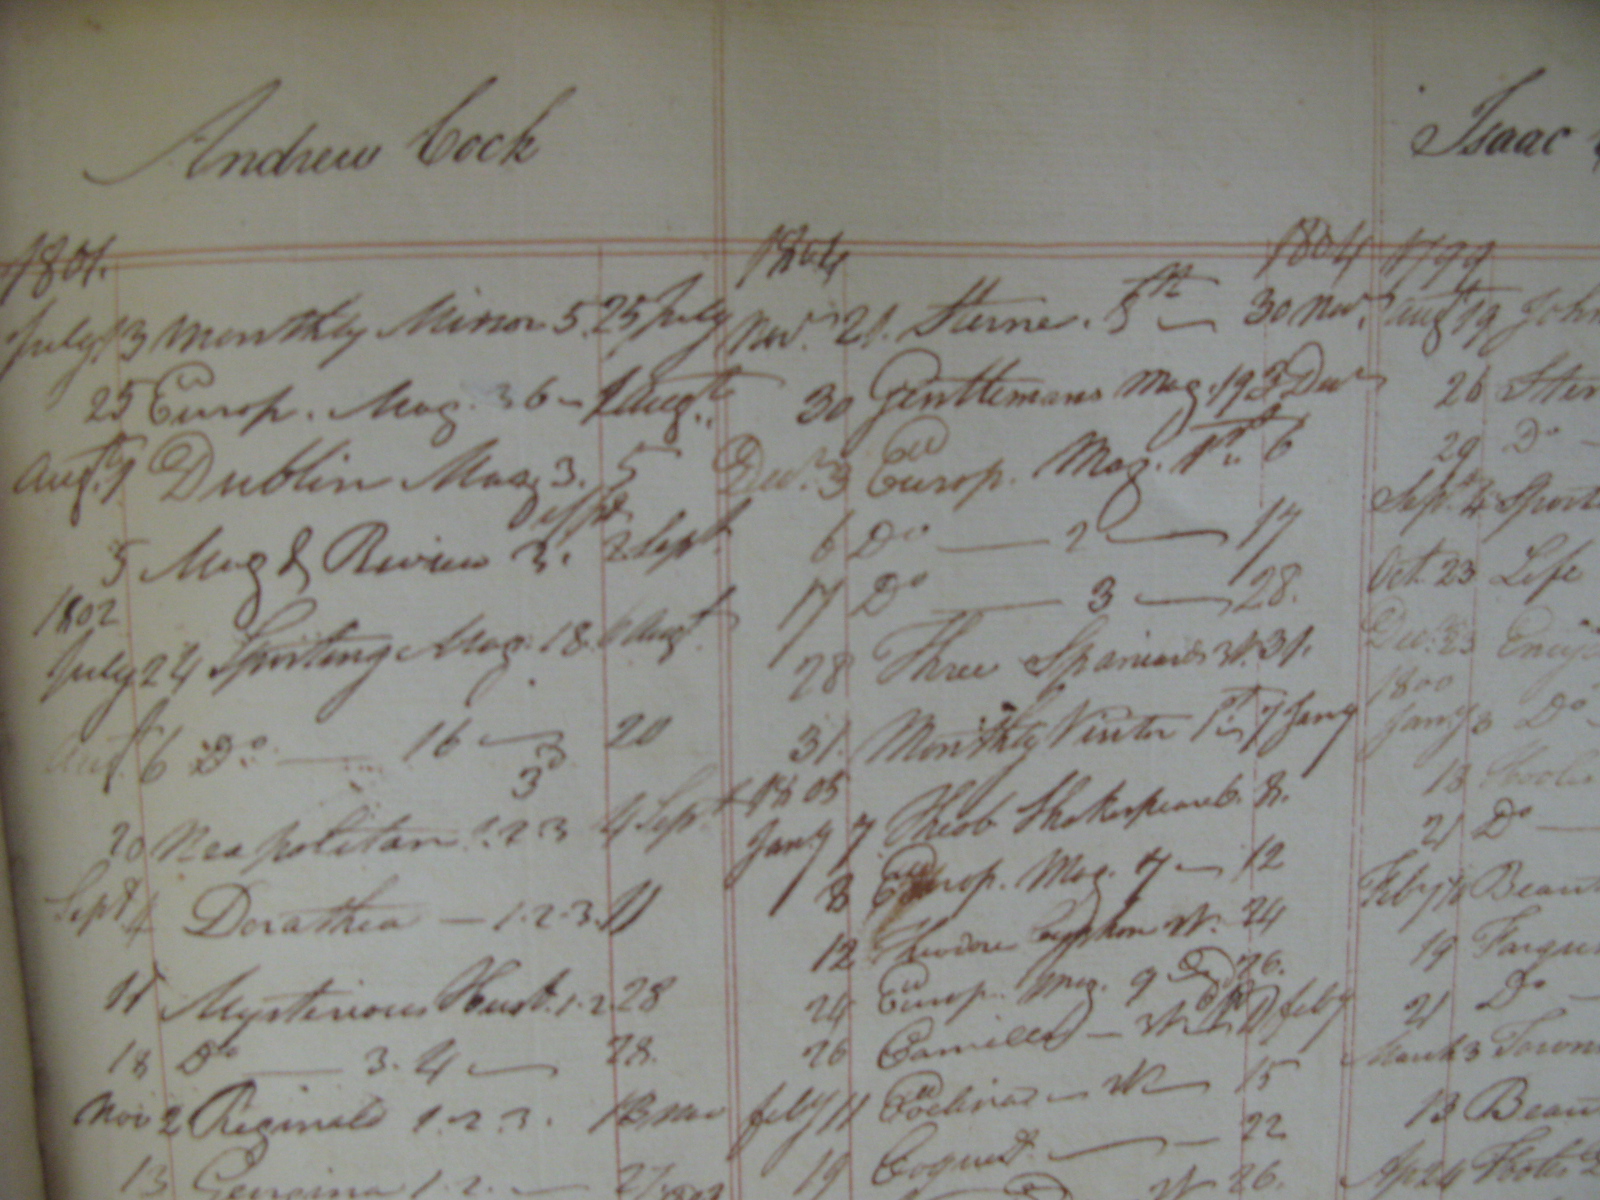 Andrew Cock
1801.
July 13 Monthly Mirror 5. 25 July
25 Europ. Mag. 36 - 1 Augt.
Augt. 1 Dublin Mag 3. 5
5 Mag & Review 3. 2 Sept
1802
July 24 Sporting Mag. 18. 6 Augt
Augt 6 Do. — 16 — 20
20 Neapolitan 1.2.3 4 Sept
Sept 4 Dorathea — 1.2.3. 11
11 Mysterious Husb. 1.2 28
18 Do — 3.4 — 28.
Nov 2 Reginald 1.2.3. 13 Nov
13 1.2. — 27
1804 1804
Nov. 21. Sterne. 5th — 30 Nov.
30 Gentlemans Mag. 19 3 Decr
Decr. 3 Europ. Mag. 1st. 6
6 Do — 2 — 17
17 Do — 3 — 28.
28 Three Spaniards 31.
31. Monthly Visitor 1st 7 Jany
1805
Jany 7 Theob Shakespeare 6. 8.
8 Europ. Mag. 7 — 12
12 Theodore Cyphon 24
24 Europ. Mag. 9 26.
26 Camilla — Feby
Feby 11 — 15
19 — 22
26.
Isaac
1799
Augt 19 John
26 Ster
29 Do —
Sept. 4 Sport
Oct. 23 Life
Decr. 23
1800
Jany 3 Do
18
21 Do —
Feby 11 Beau
19 Farqu
21 Do —
March 3 Town
13 Beau
Ap 24 Foote